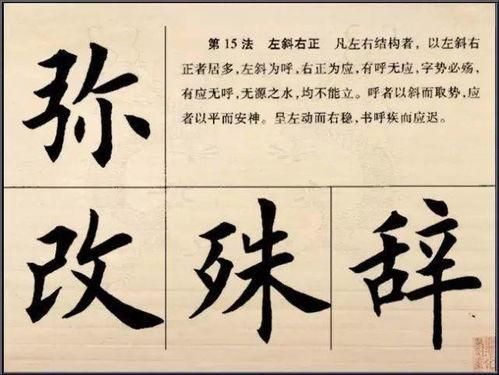 第15法 左斜右正 凡左右结构者，以左斜右
正者居多，左斜为呼，右正为应，有呼无应，字势必殇，
有应无呼，无源之水，均不能立。呼者以斜而取势，应
者以平而安神。呈左动而右稳，书呼疾而应迟。
弥
改 殊 辞